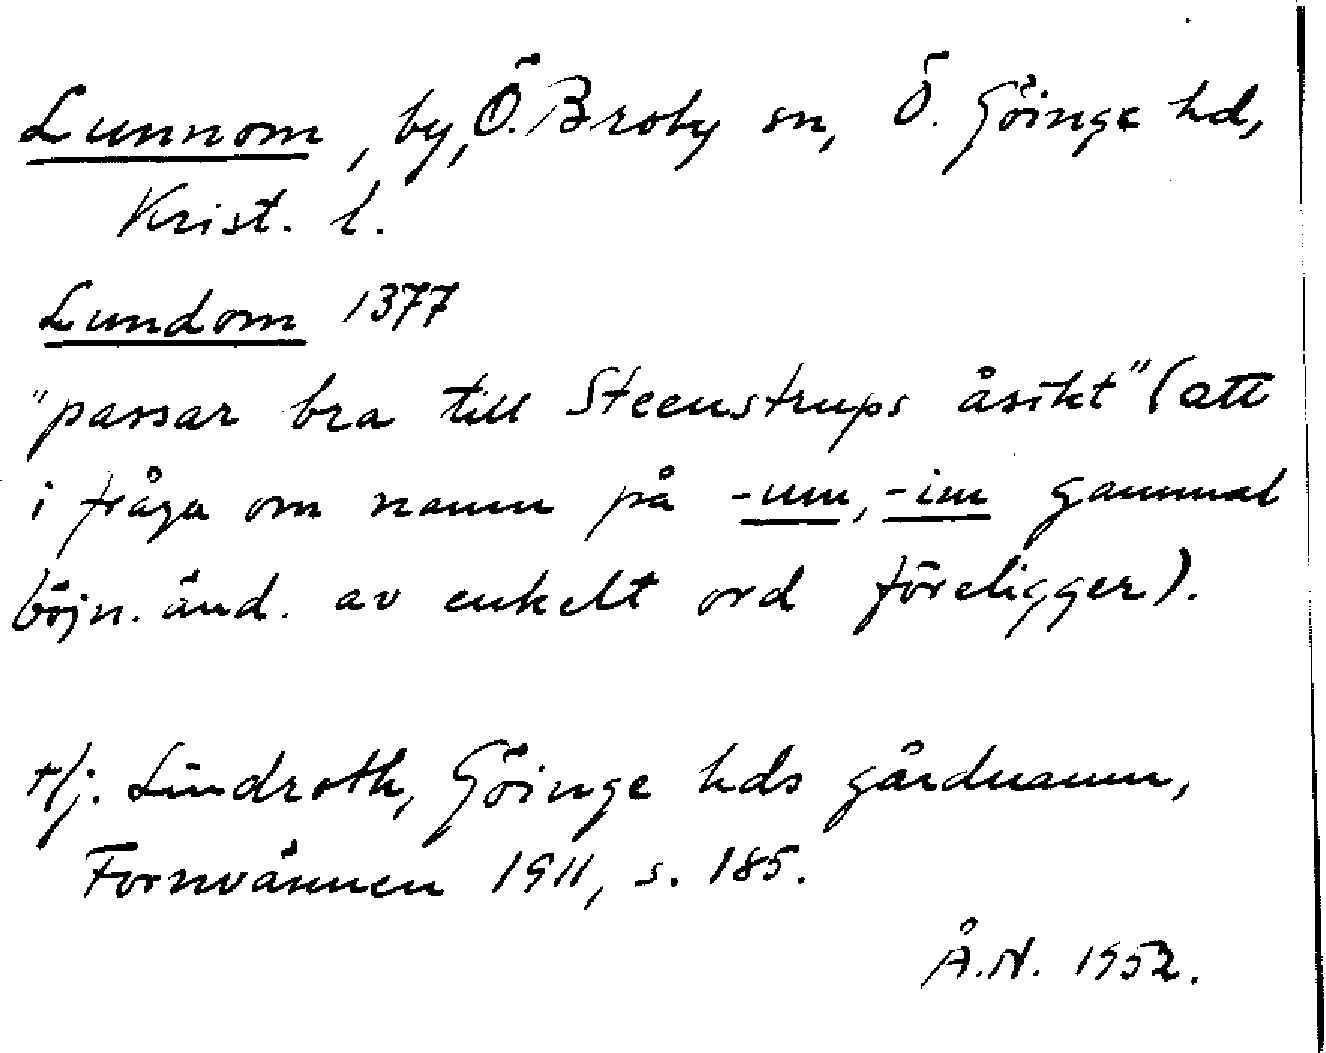 Lunnom, by, Ö. Broby sn, Ö. Göinge hd,
Krist. l.
Lundom 1377
"passar bra till Steenstrups åsikt" (att
i fråga om namn på -um, -im gammal
böjn. änd. av enkelt ord föreligger).
Hj. Lindroth, Göinge hds gårdnamn,
Fornvännen 1911, s. 185.
Å.N. 1952.